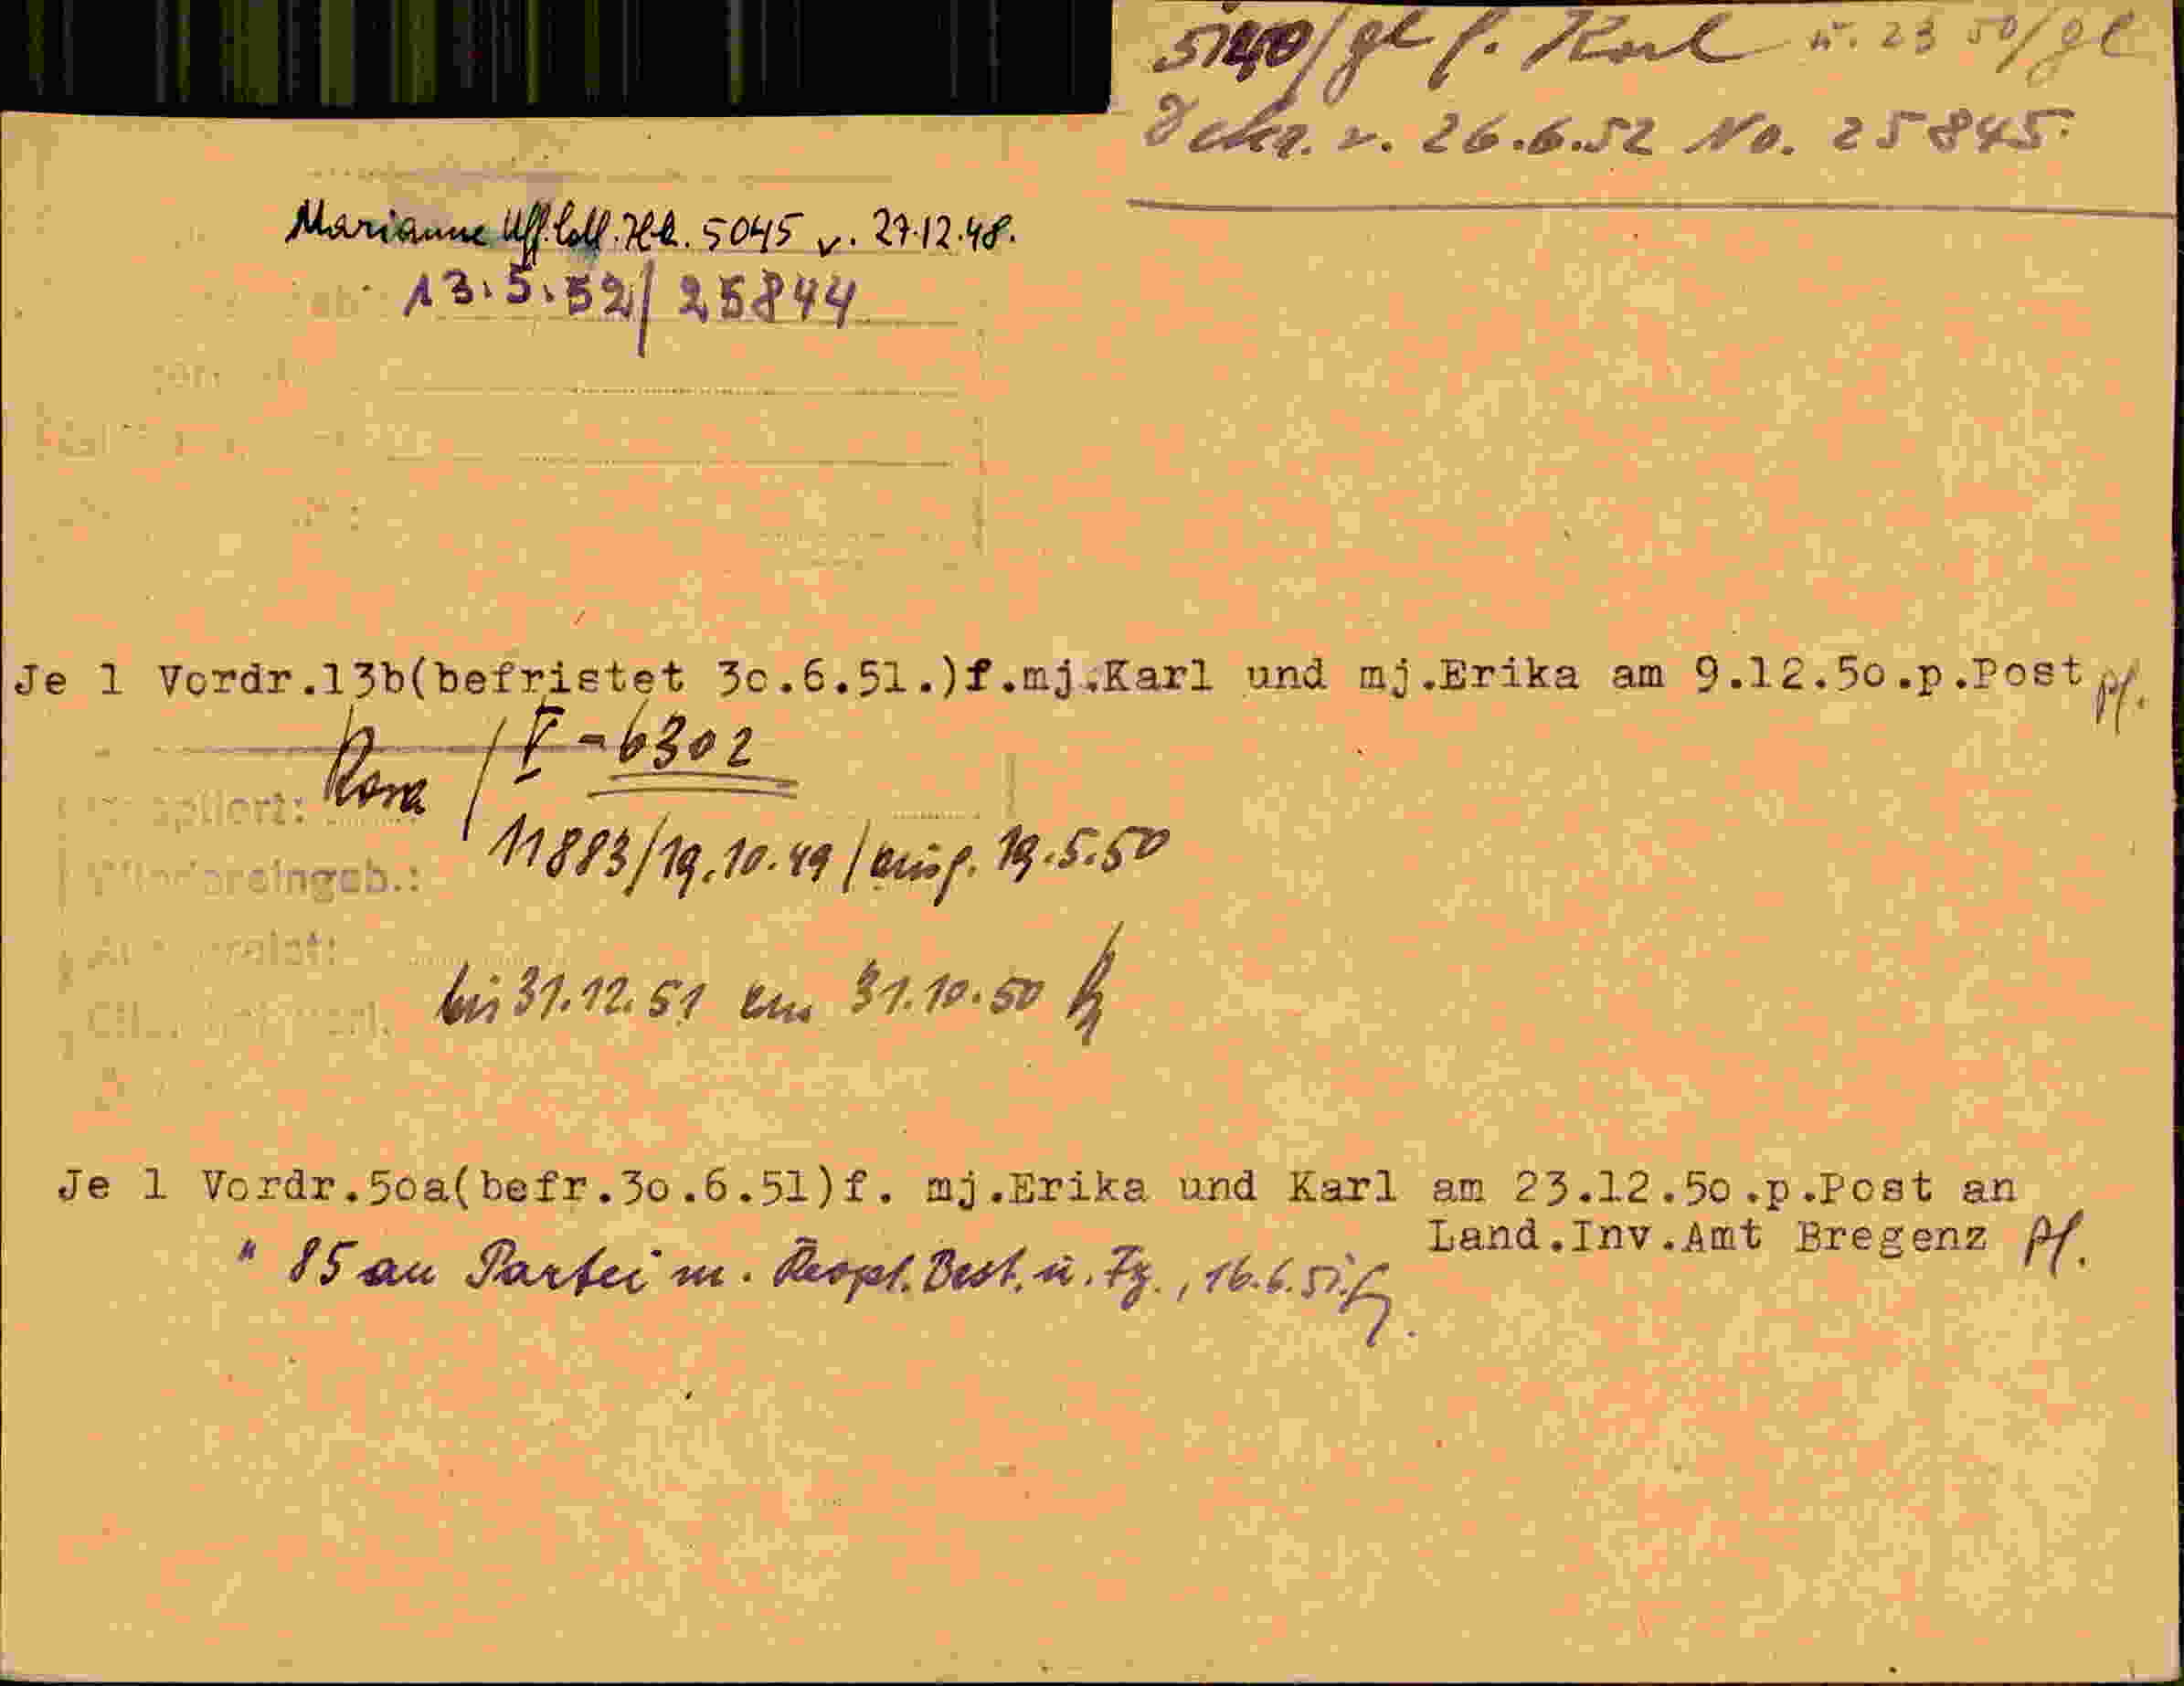 5140/gl f. Karl u. 23 50/gl
Dekr. v. 26.6.52 No. 25845.
Marianne Uff. Coll. 5045 v. 27.12.48.
13.5.52/25844
Je 1 Vordr.13b(befristet 3o.6.51.)f.mj.Karl und mj.Erika am 9.12.5o.p.Post pf.
Rora / I-6302
optiert:
11883/19.10.49/ausg. 19.5.50
eingeb.:
bis 31.12.51 am 31.10.50
Je 1 Vordr.5oa(befr.3o.6.51)f. mj.Erika und Karl am 23.12.5o.p.Post an
Land.Inv.Amt Bregenz pf.
" 85 an Partei m. Reopt. Best. u. Zg., 16.6.51.